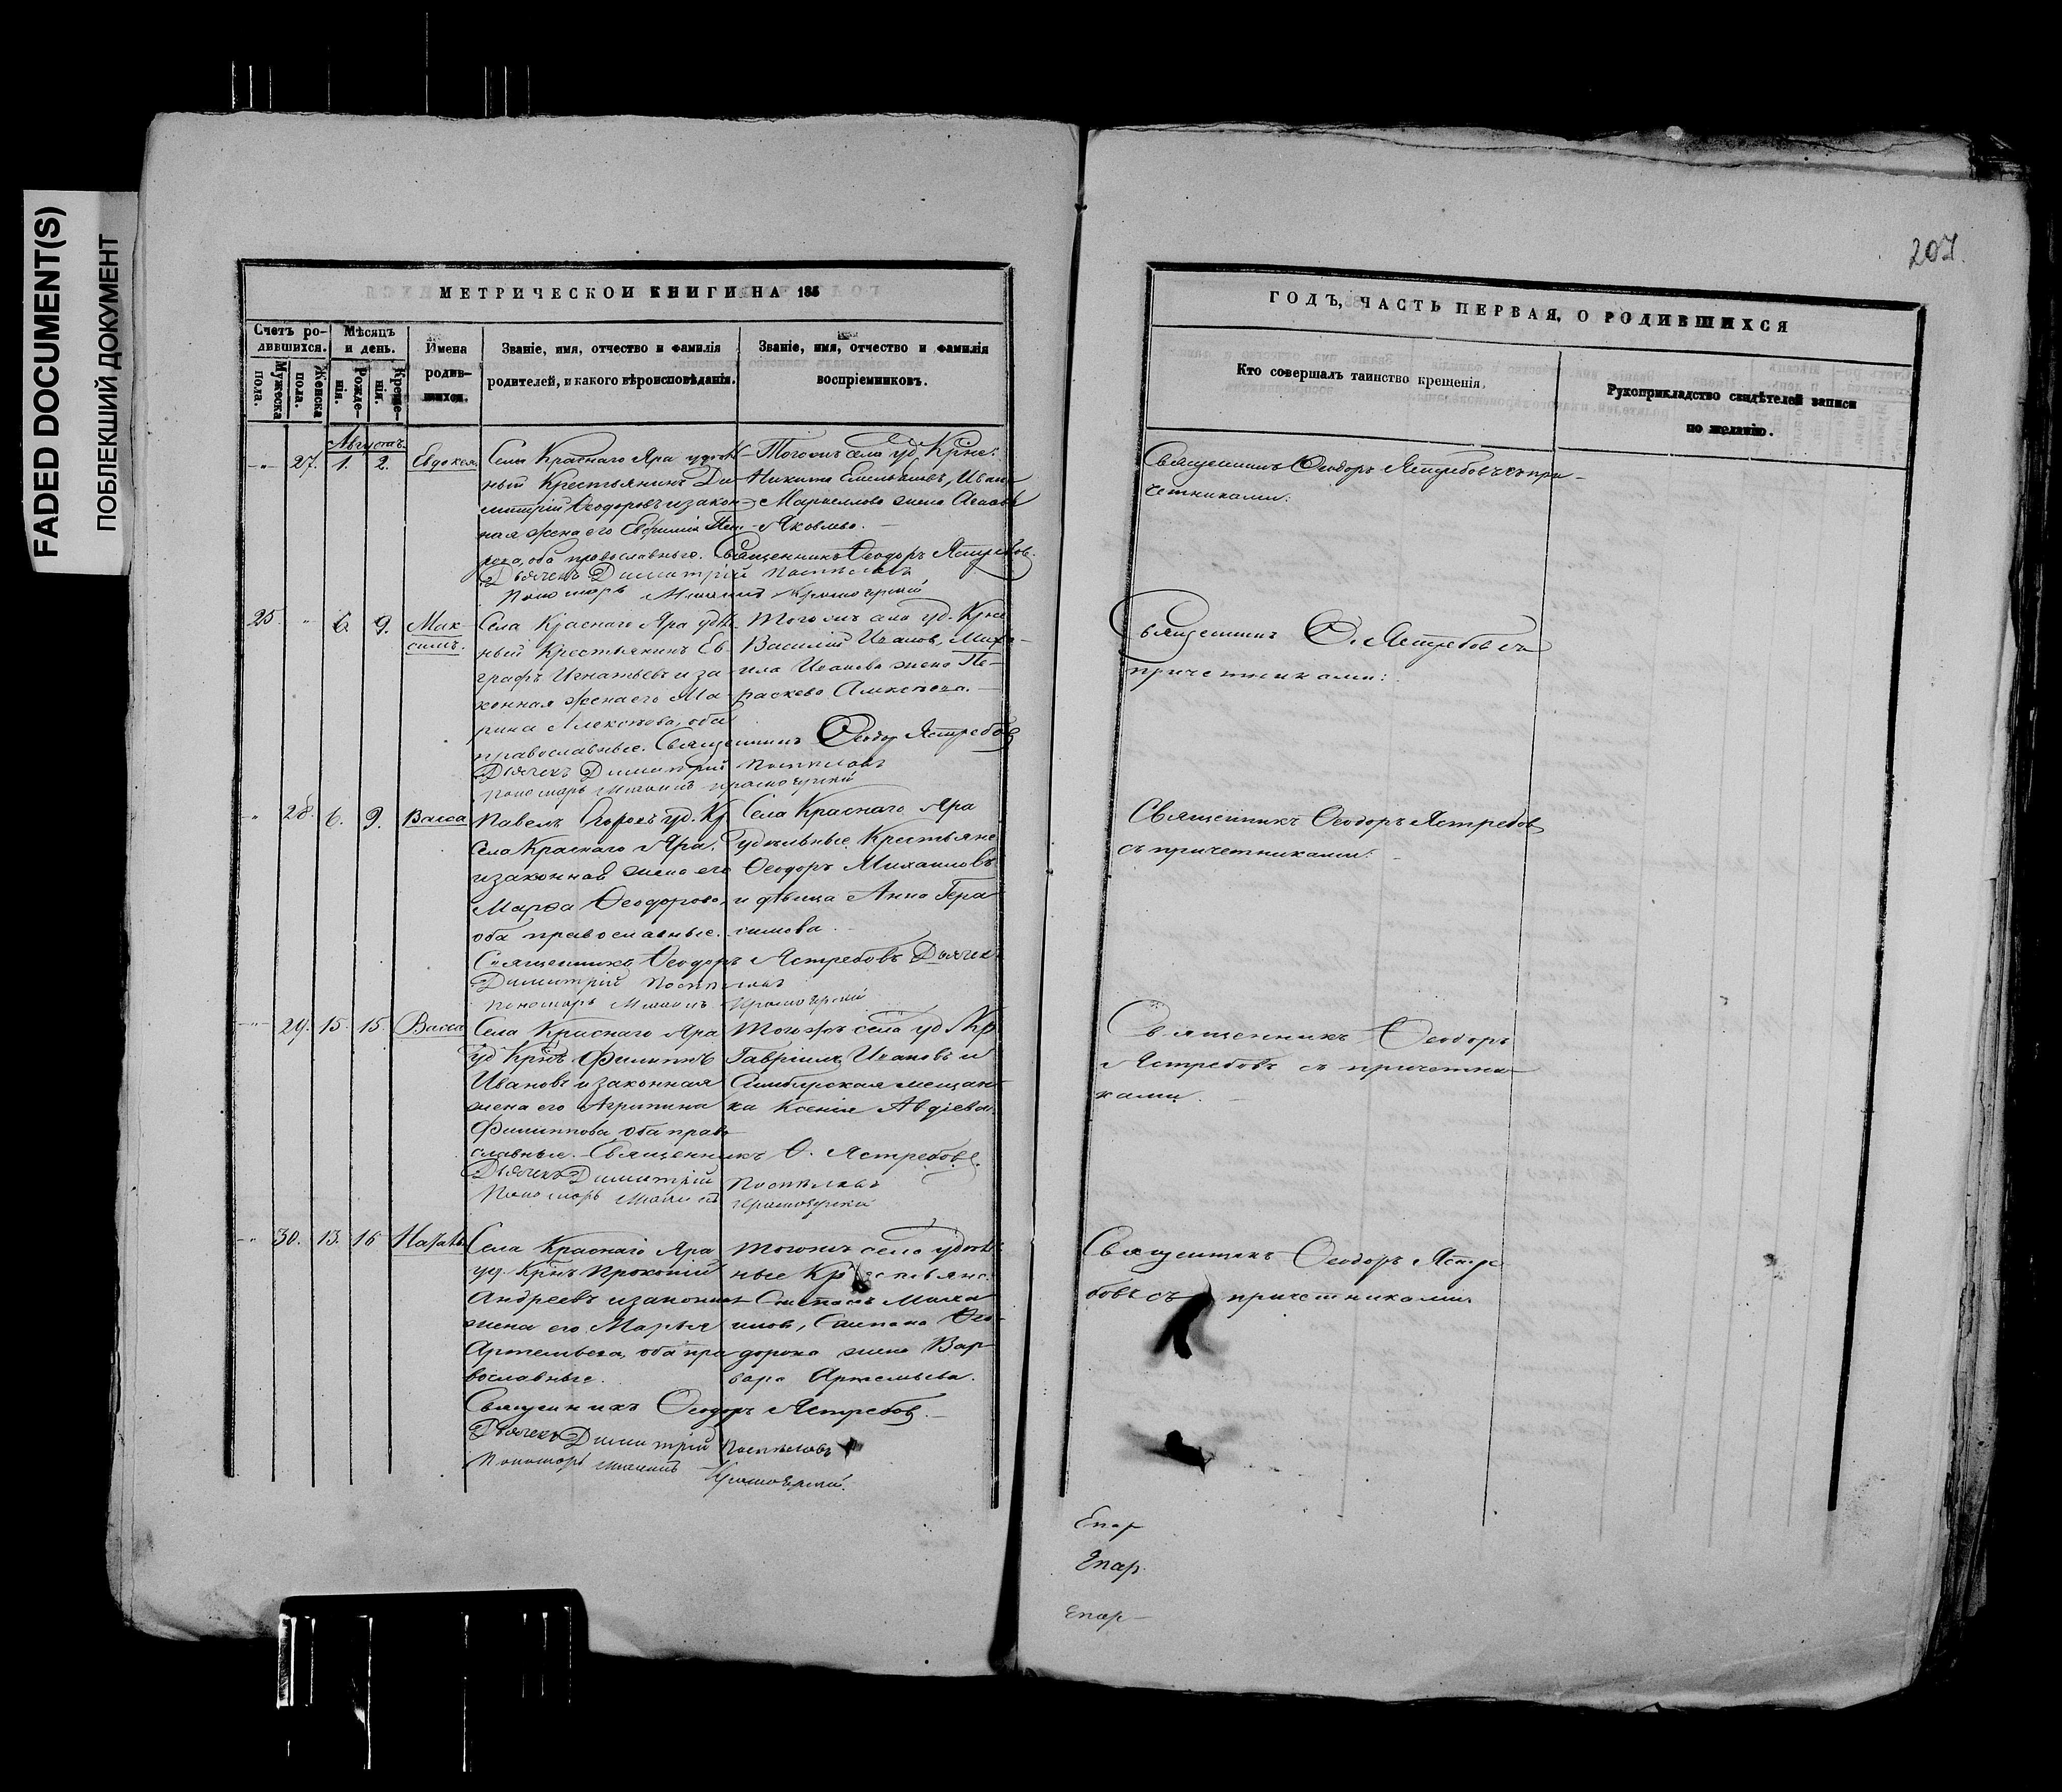 FADED DOCUMENT(S)
ПОБЛЕКШИЙ ДОКУМЕНТ
МЕТРИЧЕСКОЙ КНИГИ НА 185
Счетъ ро-
дившихся.
Мужеска
пола.
Женска
пола.
Мѣсяцъ
и день.
Рожде-
нія.
Креще-
нія.
Имена
родив-
шихся.
Званіе, имя, отчество и фамилія
родителей, и какого вѣроисповѣданія.
Званіе, имя, отчество и фамилія
воспріемниковъ.
Августъ
27. 1. 2. Евдокея
Села Краснаго Яра удѣль-
ный Крестьянинъ Ди-
митрій Ѳеодоровъ и закон-
ная жена его Евфимія Пет-
рова, оба православнаго. Священникъ Ѳеодоръ Ястребов.
Дьячекъ Димитрій Поспѣловъ
Пономарь Михаилъ Красноярскій
Тогожъ села уд. Крне.
Никита Емельяновъ, Ивана
жена Агаѳья
Яковлева.
25. 6. 9. Мак-
симъ.
Села Краснаго Яра удѣль-
ный Крестьянинъ Ев-
графъ Игнатьевъ и за-
конная жена его Ма-
рина Алексѣева, оба
православные. Священникъ Ѳеодор Ястребов
Дьячекъ Димитрій Поспѣловъ
Пономарь Михаилъ Красноярскій
Тогожъ села уд. Крне
Василій Ивановъ, Миха-
ила Иванова жена Па-
раскева Алексѣева.
28. 6. 9. Васса
Павелъ уд. Кр
Села Краснаго Яра.
и законная жена его
Марѳа Ѳеодорова,
оба православные.
Священникъ Ѳеодоръ Ястребовъ Дьячек
Димитрій Поспѣловъ
Пономарь Михаилъ Красноярскій
Села Краснаго Яра
Удѣльные Крестьяне
Ѳеодоръ Михаиловъ
и дѣвица Анна Гера
симова.
29. 15. 15. Васса
Села Краснаго Яра
уд Крнъ Филиппъ
Ивановъ и законная
жена его Агрипина
Филиппова, оба право-
славные. Священникъ Ѳ. Ястребовъ.
Дьячекъ Димитрій Поспѣловъ
Пономарь Михаилъ Красноярскій
Тогожъ села уд Кр.
Гавріилъ Ивановъ и
Симбирская мещан-
ка Ксенія Авдіева.
30. 13. 16 Натал.
Села Краснаго Яра
уд. Крнъ Прокопій
Андреевъ и законная
жена его Марья
Артемьева, оба пра
вославные.
Священникъ Ѳеодоръ Ястребов.
Дьячекъ Димитрій Поспѣловъ
Пономарь Михаилъ Красноярскій.
Тогожъ села удѣль-
ные Крестьяне
Степанъ Миха
иловъ, Ѳео-
дорова жена Вар
вара Артемьева.
207.
ГОДЪ, ЧАСТЬ ПЕРВАЯ, О РОДИВШИХСЯ
Кто совершалъ таинство крещенія,
Рукоприкладство свидѣтелей записи
по желанію.
Священникъ Ѳеодоръ Ястребовъ съ при-
четниками.
Священникъ Ѳ. Ястребов съ
причетниками.
Священникъ Ѳеодоръ Ястребов
съ причетниками.
Священникъ Ѳеодоръ
Ястребовъ съ причетни-
ками.
Священникъ Ѳеодоръ Ястре
бовъ съ причетниками
Епар
Епар.
Епар